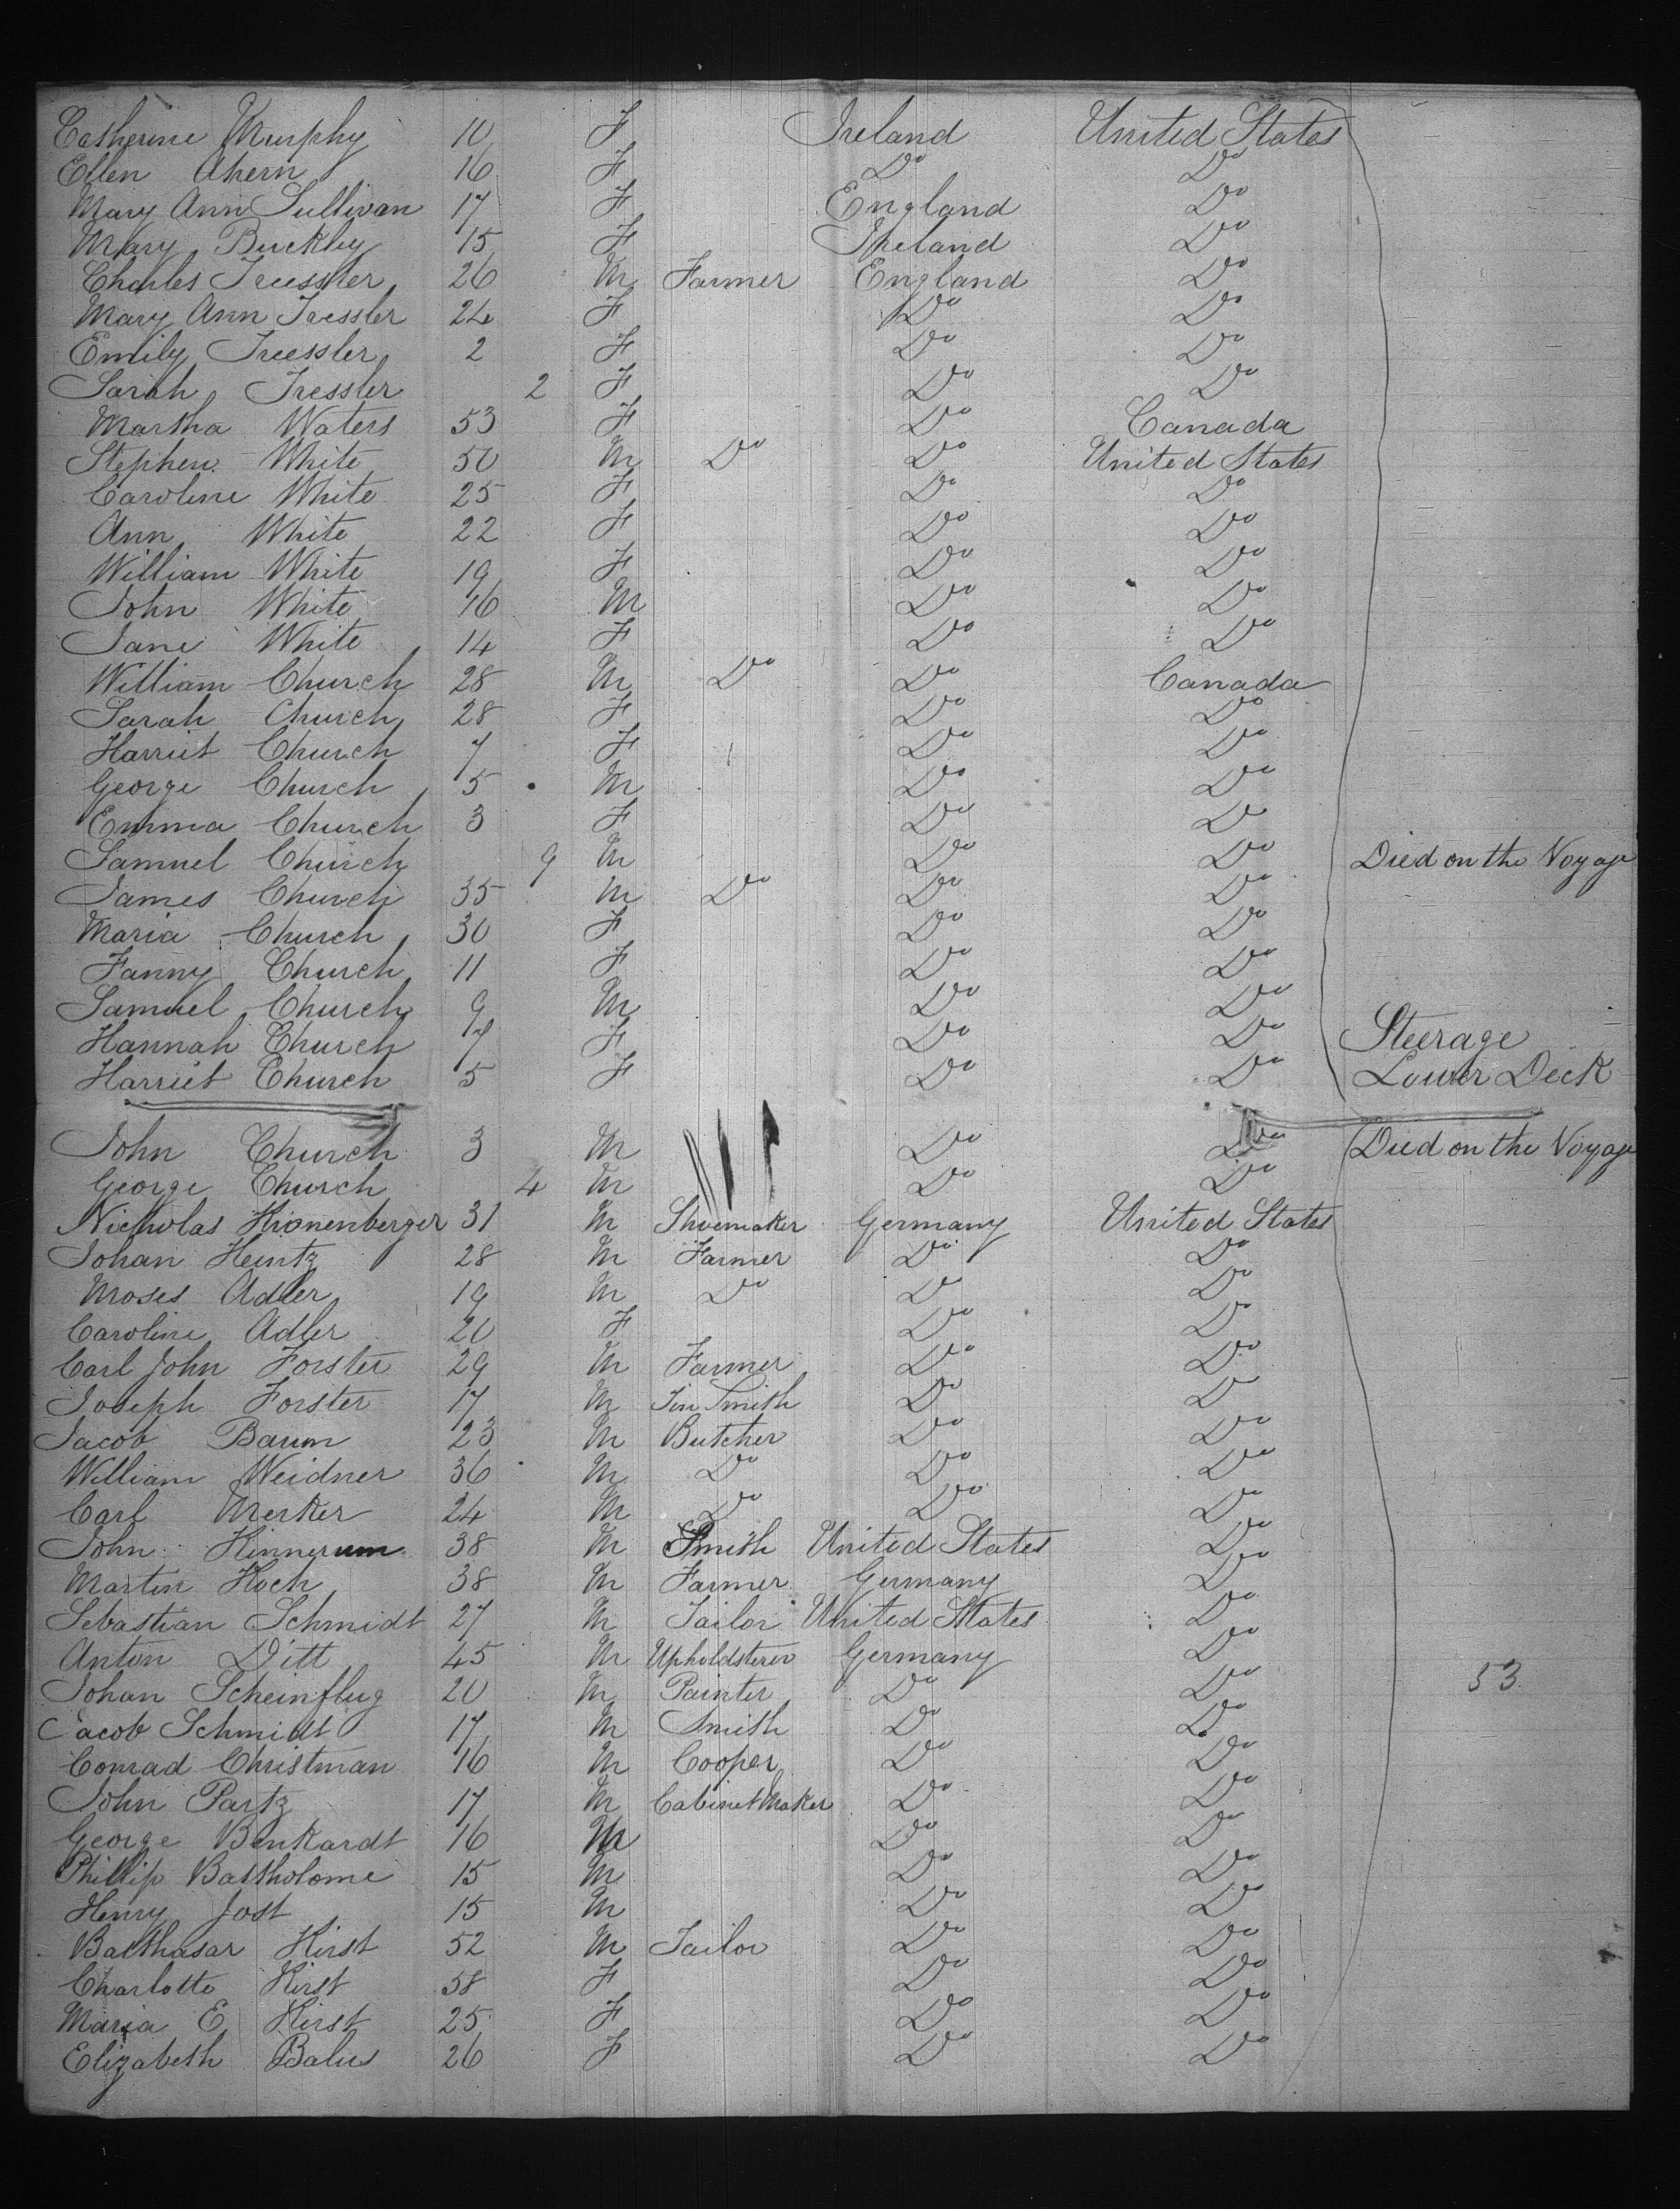 Catherine Murphy 10 F Ireland United States
Ellen Ahern 16 F Do Do
Mary Ann Sullivan 17 F England Do
Mary Buckley 15 F Ireland Do
Charles Treessler 26 M Farmer England Do
Mary Ann Tressler 24 F Do Do
Emily Treessler 2 F Do Do
Sarah Tressler 2 F Do Do
Martha Waters 53 F Do Canada
Stephen White 50 M Do Do United States
Caroline White 25 F Do Do
Ann White 22 F Do Do
William White 19 F Do Do
John White 16 M Do Do
Jane White 14 F Do Do
William Church 28 M Do Do Canada
Sarah Church 28 F Do Do
Harriet Church 7 F Do Do
George Church 5 M Do Do
Emma Church 3 F Do Do
Samuel Church 9 M Do Do Died on the Voyage
James Church 35 M Do Do Do
Maria Church 30 F Do Do
Fanny Church 11 F Do Do
Samuel Church 9 M Do Do
Hannah Church 7 F Do Do Steerage
Harriet Church 5 F Do Do Lower Deck
John Church 3 M Do Do Died on the Voyage
George Church 4 M Do Do
Nicholas Kronenberger 31 M Shoemaker Germany United States
Johan Heintz 28 M Farmer Do Do
Moses Adler 19 M Do Do Do
Caroline Adler 20 F Do Do
Carl John Forster 29 M Farmer Do Do
Joseph Forster 17 M Tin Smith Do Do
Jacob Baum 23 M Butcher Do Do
William Weidner 36 M Do Do Do
Carl Merker 24 M Do Do Do
John Kinnerum 38 M Smith United States Do
Martin Koch 38 M Farmer Germany Do
Sebastian Schmidt 27 M Tailor United States Do
Anton Ditt 45 M Upholdsterer Germany Do
Johan Scheinflug 20 M Painter Do Do 53
Jacob Schmidt 17 M Smith Do Do
Conrad Christman 16 M Cooper Do Do
John Partz 17 M Cabinet Maker Do Do
George Benkardt 16 M Do Do
Phillip Bartholome 15 M Do Do
Henry Jost 15 M Do Do
Balthasar Hirst 52 M Tailor Do Do
Charlotte Hirst 58 F Do Do
Maria E Hirst 25 F Do Do
Elizabeth Balus 26 F Do Do